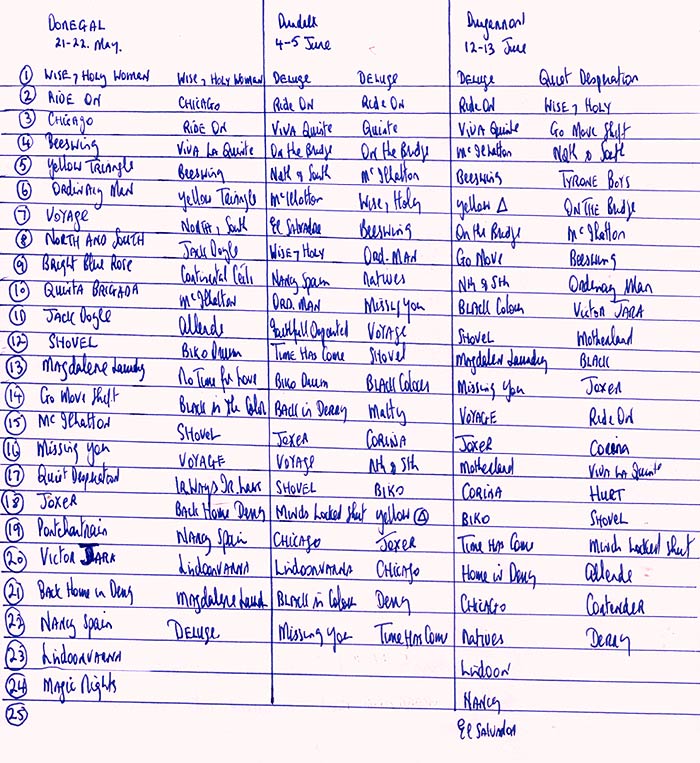 DONEGAL Dundalk Dungannon
21-22. May. 4-5 June 12-13 June
① WISE, HOLY WOMAN WISE, HOLY WOMAN DELUGE DELUGE DELUGE Quiet Desperation
② RIDE ON CHICAGO Ride On Ride On Ride On WISE, HOLY
③ CHICAGO RIDE ON VIVA Quinte Quinte VIVA Quinte Go Move Shift
④ Beeswing VIVA LA Quinte On the Bridge On the Bridge McIlhatton Nth & South
⑤ Yellow Triangle Beeswing Nth & South McIlhatton Beeswing TYRONE BOYS
⑥ Ordinary Man Yellow Triangle McIlhatton Wise, Holy yellow △ ON THE Bridge
⑦ VOYAGE North, South El Salvador Beeswing On the Bridge McIlhatton
⑧ NORTH AND SOUTH Jack Doyle WISE, HOLY ORD. MAN Go Move Beeswing
⑨ Bright Blue Rose Continental Ceili Nancy Spain Natives Nth & Sth Ordinary Man
⑩ QUINTA BRIGADA McIlhatton ORD. MAN Missing You BLACK Colour Victor JARA
⑪ Jack Doyle Allende Faithfull Departed VOYAGE SHOVEL Motherland
⑫ SHOVEL BIKO Drum TIME HAS COME Shovel Magdalen Laundry BLACK
⑬ Magdalene Laundry No Time for Love BIKO Drum BLACK Colour Missing You JOXER
⑭ Go Move Shift BLACK in The Color BACK in DERRY Matty VOYAGE Ride On
⑮ McIlhatton SHOVEL JOXER CORINA JOXER Corina
⑯ Missing you VOYAGE VOYAGE Nth & Sth Motherland VIVA LA Quinte
⑰ Quiet Desperation SHOVEL BIKO CORINA HURT
⑱ JOXER BACK HOME Derry Minds Locked Shut yellow △ BIKO SHOVEL
⑲ Pontchartrain Nancy Spain CHICAGO JOXER TIME HAS COME Minds Locked Shut
⑳ VICTOR JARA LISDOONVARNA LISDOONVARNA CHICAGO Home in Derry Allende
㉑ Back Home in Derry Magdalene Laund BLACK in Colour Derry CHICAGO Contender
㉒ NANCY Spain DELUGE Missing You TIME HAS COME Natives DERRY
㉓ LISDOONVARNA Lisdoon
㉔ Magic Nights NANCY
㉕ El Salvador